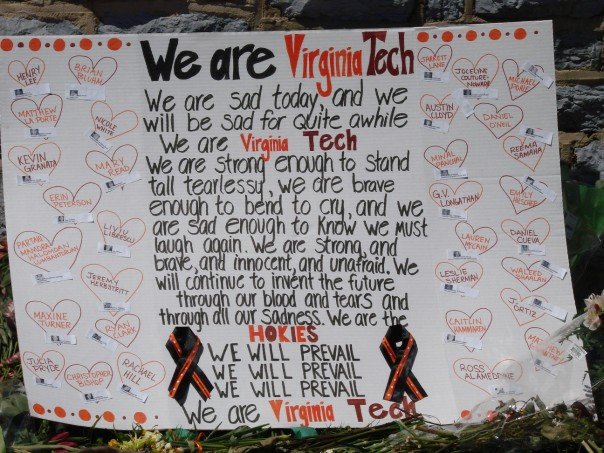 We are Virginia Tech
We are sad today, and we
will be sad for quite awhile
We are Virginia Tech
We are strong enough to stand
tall tearlessy, we are brave
enough to bend to cry, and we
are sad enough to know we must
laugh again. We are strong, and
brave, and innocent, and unafraid. We
will continue to invent the future
through our blood and tears and
through all our sadness. We are the
HOKIES
WE WILL PREVAIL
WE WILL PREVAIL
WE WILL PREVAIL
We are Virginia Tech
HENRY
LEE
BRIAN
BLUHM
MATTHEW
LA PORTE
NICOLE
WHITE
KEVIN
GRANATA
MARY
READ
ERIN
PETERSON
LIVIU
LIBRESCU
PARTAHI
JEREMY
HERBSTRITT
MAXINE
TURNER
RYAN
CLARK
JULIA
PRYDE
CHRISTOPHER
BISHOP
RACHAEL
HILL
JARRETT
LANE
COUTURE-
MICHAEL
POHLE
AUSTIN
CLOYD
DANIEL
O'NEIL
MINAL
PANCHAL
REEMA
SAMAHA
G.V.
EMILY
HILSCHER
LAUREN
McCAIN
DANIEL
CUEVA
LESLIE
SHERMAN
WALEED
SHAALAN
CAITLIN
HAMMAREN
J.
ORTIZ
ROSS
ALAMEDDINE